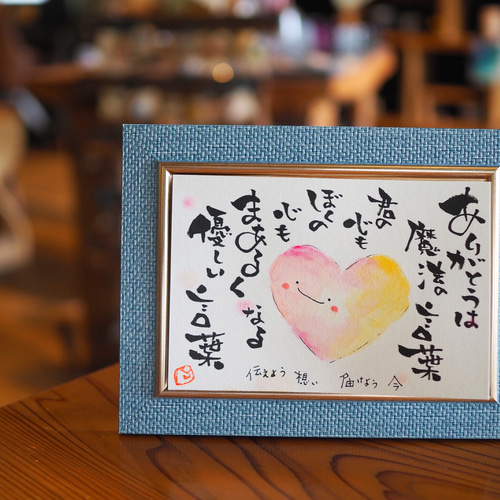 ありがとうは
魔法の言葉
君の
心も
ぼくの
心も
まあるくなる
優しい言葉
伝えよう 想い 届けよう 今